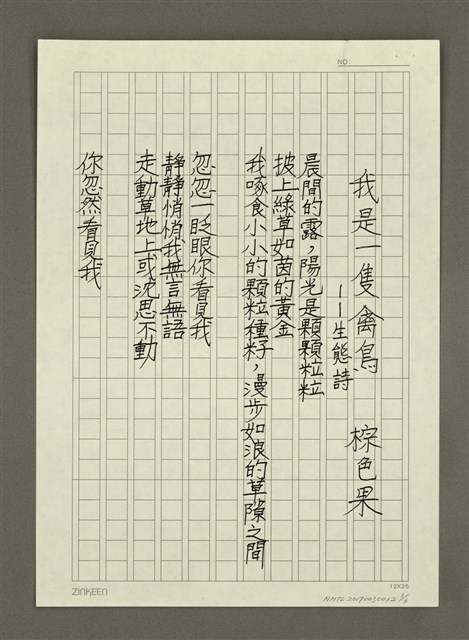 NO:
我是一隻禽鳥 棕色果
——生態詩
晨間的露,陽光是顆顆粒粒
披上綠草如茵的黃金
我啄食小小的顆粒種籽,漫步如浪的草隙之間
忽忽一眨眼你看見我
靜靜悄悄我無言無語
走動草地上或沈思不動
你忽然看見我
ZINKEEN
12X25
NMTL20170030012